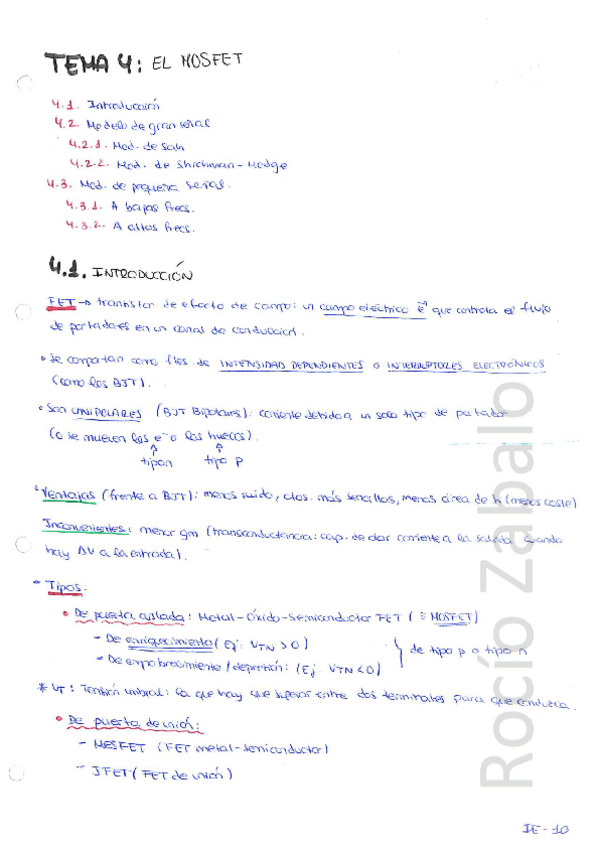 TEMA 4: EL MOSFET
4.1. Introducción
4.2. Modelo de gran señal
4.2.1. Mod. de Sah
4.2.2. Mod. de Shichman-Hodge
4.3. Mod. de pequeña señal.
4.3.1. A bajas frecs.
4.3.2. A altas frecs.
4.1. INTRODUCCIÓN
FET → transistor de efecto de campo: un campo eléctrico E⃗ que controla el flujo
de portadores en un canal de conducción.
• Se comportan como ftes. de INTENSIDAD DEPENDIENTES o INTERRUPTORES ELECTRÓNICOS
(como los BJT).
• Son UNIPOLARES (BJT Bipolares): corriente debido a un solo tipo de portador
(o se mueven los e⁻ o los huecos).
↑ ↑
tipo n tipo p
• Ventajas (frente a BJT): menos ruido, ctos. más sencillos, menos área de (menos coste)
Inconvenientes: menor gm (transconductancia: cap. de dar corriente a la salida cuando
hay ΔV a la entrada).
- Tipos:
• De puerta aislada: Metal-Óxido-Semiconductor FET (≡ MOSFET)
- De enriquecimiento (Ej: VTN > 0)
- De empobrecimiento/depresión: (Ej: VTN < 0)
} de tipo p o tipo n
* VT: Tensión umbral: la que hay que superar entre dos terminales para que conduzca.
• De puerta de unión:
- MESFET (FET metal-semiconductor)
- JFET (FET de unión)
IE-10
Rocío Zabalo